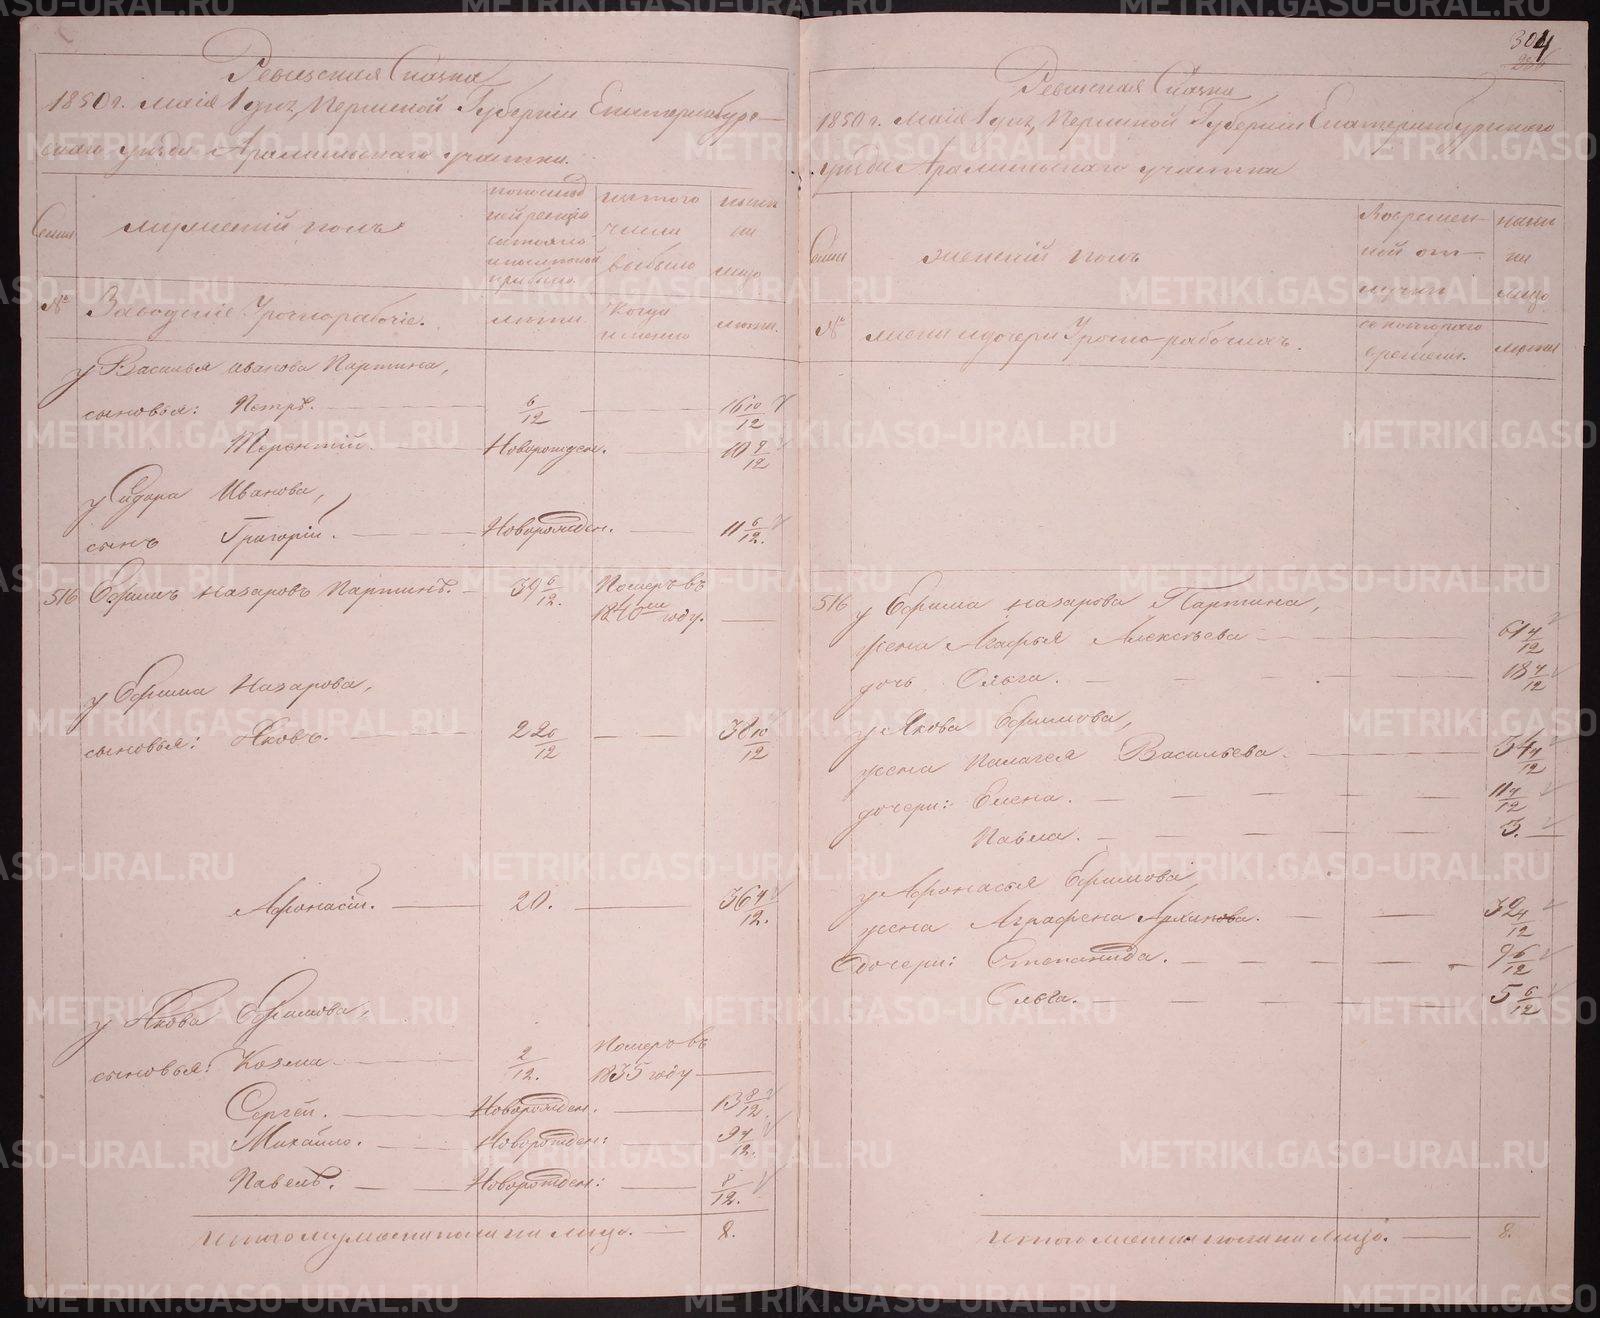 304
Ревизская Сказка
1850 г. маія 1 дня, Пермской Губерніи Екатеринбург-
скаго уезда Арамильскаго участка.
Семьи
мужескій полъ
по последней ревизіи состояло и после того прибыло
изъ того числа выбыло
ныне на лицо
№
Заводскіе Урочнорабочіе.
лета
Когда именно
лета.
у Василья Иванова Партина,
сыновья: Петръ. 6/12 16 10/12
Терентій. Новорожден. 10 9/12
у Сидора Иванова,
сынъ Григорій. Новорожден. 11 6/12.
516 Ефимъ Назаровъ Партинъ. 39 6/12. Померъ въ
1840м году.
у Ефима Назарова,
сыновья: Яковъ. 22 6/12 38 10/12
Афонасій. 20. 36 4/12.
у Якова Ефимова,
сыновья: Козма 2/12. Померъ въ
1835 году
Сергей. Новорожден. 13 8/12.
Михайло. Новорожден: 9 4/12.
Павелъ. Новорожден: 8/12.
Итого мужеска пола на лицо. 8.
Ревизская Сказка
1850 г. маія 1 дня, Пермской Губерніи Екатеринбургскаго
уезда Арамильскаго участка
Семьи
женскій полъ
Во временной отлучке
ныне на лицо
№
жены и дочери Урочно-рабочихъ.
съ котораго времени.
лета
516 у Ефима Назарова Партина,
жена Агафья Алексеева 61 4/12
дочь Ольга. 18 4/12
у Якова Ефимова,
жена Палагея Васильева 34 4/12
дочери: Елена. 11 4/12
Павла. 3.
у Афонасья Ефимова,
жена Аграфена Архипова. 30 4/12
дочери: Степанида. 9 6/12
Ольга. 5 6/12
Итого женска пола на лицо. 8.
METRIKI.GASO-URAL.RU